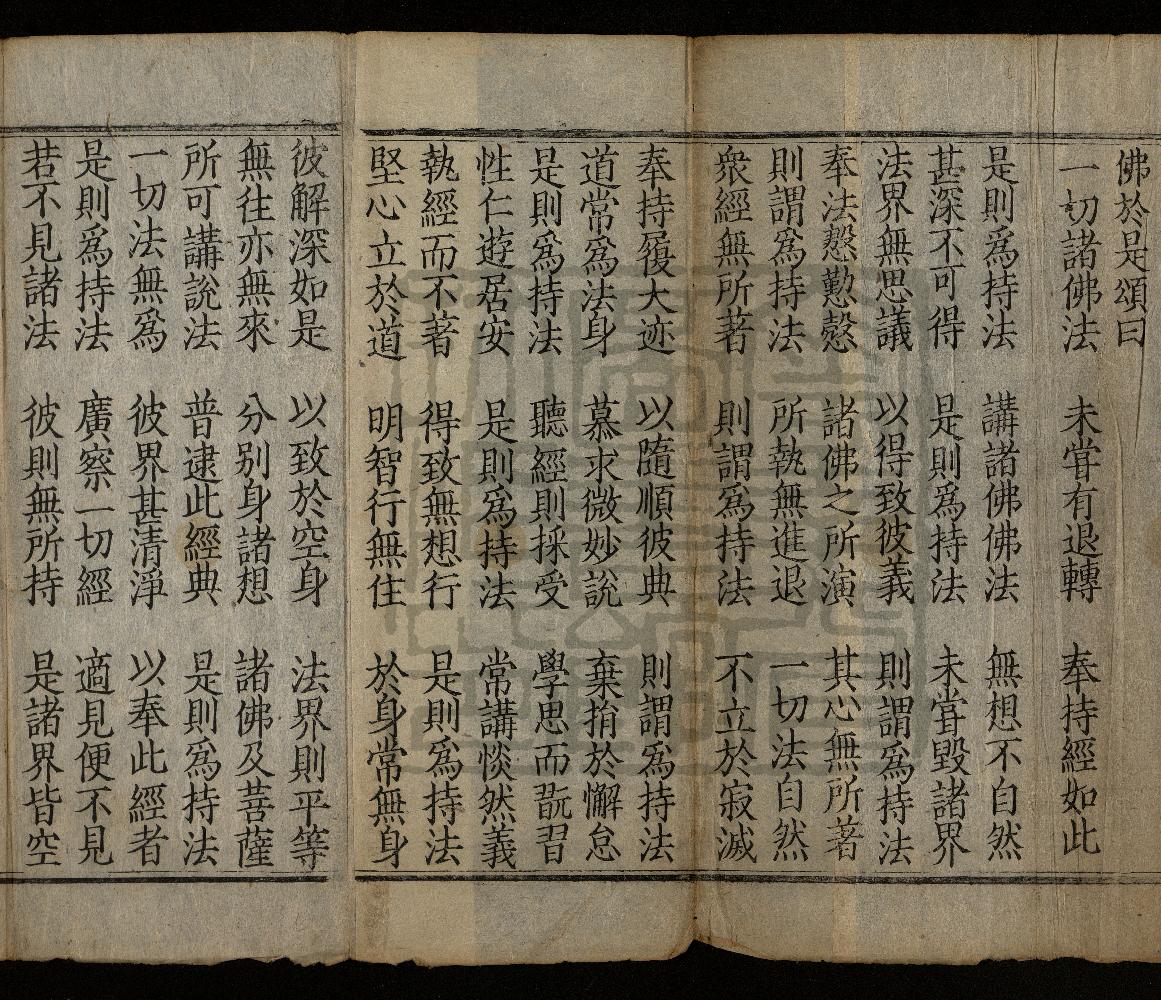 佛於是頌曰
一切諸佛法　未甞有退轉　奉持經如此
是則爲持法　講諸佛佛法　無想不自然
甚深不可得　是則爲持法　未甞毀諸界
法界無思議　以得致彼義　則謂爲持法
奉法慇懃慇　諸佛之所演　其心無所著
則謂爲持法　所執無進退　一切法自然
衆經無所著　則謂爲持法　不立於寂滅
奉持履大迹　以隨順彼典　則謂爲持法
道常爲法身　慕求微妙說　棄捐於懈怠
是則爲持法　聽經則採受　學思而翫習
性仁遊居安　是則爲持法　常講惔然義
執經而不著　得致無想行　是則爲持法
堅心立於道　明智行無住　於身常無身
彼解深如是　以致於空身　法界則平等
無往亦無來　分別身諸想　諸佛及菩薩
所可講說法　普逮此經典　是則爲持法
一切法無爲　彼界甚清淨　以奉此經者
是則爲持法　廣察一切經　適見便不見
若不見諸法　彼則無所持　是諸界皆空